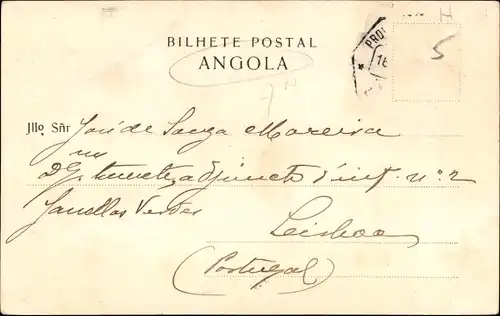 BILHETE POSTAL
ANGOLA
PRO
16
5
Jllo Sñr José de Souza Moreira
Dg. tenente, adjuncto d'inf. nº 2
Janellas Verdes
Lisboa
(Portugal)